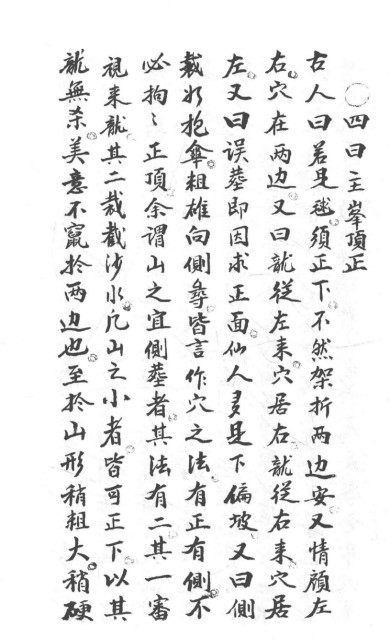 ○四曰主峯頂正
古人曰若是毬須正下不然架折两边安又情顧左
右穴在两边又曰龍從左来穴居右龍從右来穴居
左又曰误塟即因求正面仙人多是下偏坡又曰側
裁如抱傘粗雄向側尋皆言作穴之法有正有側不
必拘〻正頂余谓山之宜側塟者其法有二其一審
視来龍其二裁截沙水凡山之小者皆可正下以其
龍無杀美意不竄扵两边也至扵山形稍粗大稍硬